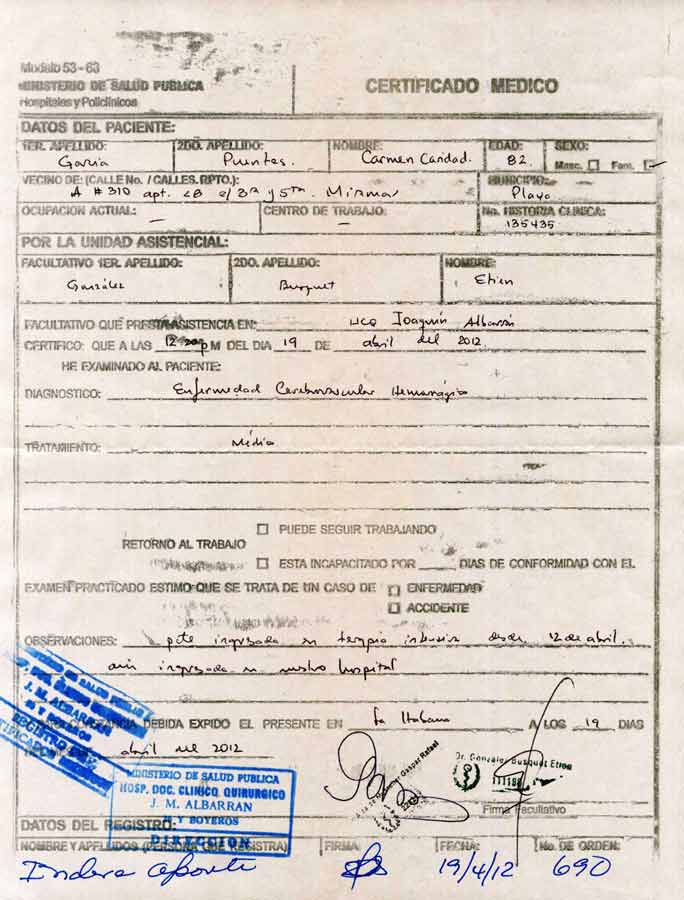 Modelo 53-63
MINISTERIO DE SALUD PUBLICA
Hospitales y Policlínicos
CERTIFICADO MEDICO
DATOS DEL PACIENTE:
1ER. APELLIDO: 2DO. APELLIDO: NOMBRE: EDAD: SEXO:
García Puentes. Carmen Caridad. 82 Masc. Fem.
VECINO DE: (CALLE No. / CALLES. RPTO.): MUNICIPIO:
A # 310 apt. e/ 3ra y 5ta. Miramar Playa
OCUPACION ACTUAL: CENTRO DE TRABAJO: No. HISTORIA CLINICA:
— — 135435
POR LA UNIDAD ASISTENCIAL:
FACULTATIVO 1ER. APELLIDO: 2DO. APELLIDO: NOMBRE:
González Busquet Etien
FACULTATIVO QUE PRESTA ASISTENCIA EN: HCQ Joaquín Albarrán
CERTIFICO: QUE A LAS PM DEL DIA 19 DE abril del 2012.
HE EXAMINADO AL PACIENTE:
DIAGNOSTICO: Enfermedad Cerebrovascular Hemorrágica
TRATAMIENTO: Médico
PUEDE SEGUIR TRABAJANDO
RETORNO AL TRABAJO
ESTA INCAPACITADO POR ____ DIAS DE CONFORMIDAD CON EL
EXAMEN PRACTICADO ESTIMO QUE SE TRATA DE UN CASO DE ENFERMEDAD
ACCIDENTE
OBSERVACIONES: pcte ingresada en terapia intensiva desde 12 de abril.
aún ingresada en nuestro hospital
CONSTANCIA DEBIDA EXPIDO EL PRESENTE EN La Habana A LOS 19 DIAS
abril del 2012
J. M. ALBARRAN
REGISTRO DE
MINISTERIO DE SALUD PUBLICA
HOSP. DOC. CLINICO QUIRURGICO
J. M. ALBARRAN
Y BOYEROS
DIRECCION
Gaspar Rafael
Dr. González Busquet Etien
Firma Facultativo
DATOS DEL REGISTRO:
NOMBRE Y APELLIDOS (PERSONA QUE REGISTRA) FIRMA: FECHA: No. DE ORDEN:
19/4/12 690